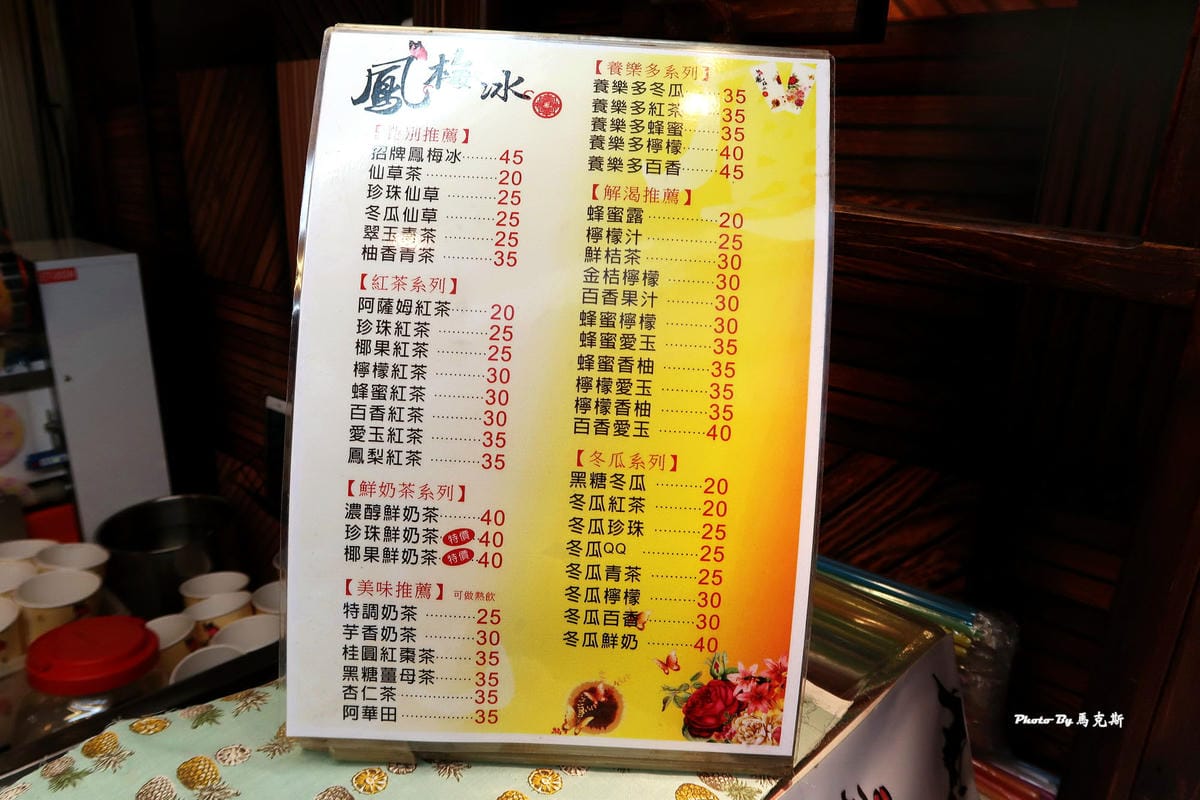 鳳梅冰
【特別推薦】
招牌鳳梅冰········45
仙草茶··············20
珍珠仙草···········25
冬瓜仙草···········25
翠玉青茶···········25
柚香青茶···········35
【紅茶系列】
阿薩姆紅茶·······20
珍珠紅茶··········25
椰果紅茶··········25
檸檬紅茶··········30
蜂蜜紅茶··········30
百香紅茶··········30
愛玉紅茶··········35
鳳梨紅茶··········35
【鮮奶茶系列】
濃醇鮮奶茶·······40
珍珠鮮奶茶 特價 40
椰果鮮奶茶 特價 40
【美味推薦】可做熱飲
特調奶茶··········25
芋香奶茶··········30
桂圓紅棗茶·······35
黑糖薑母茶·······35
杏仁茶·············35
阿華田·············35
【養樂多系列】
養樂多冬瓜·······35
養樂多紅茶·······35
養樂多蜂蜜·······35
養樂多檸檬·······40
養樂多百香·······45
【解渴推薦】
蜂蜜露·············20
檸檬汁·············25
鮮桔茶·············30
金桔檸檬··········30
百香果汁··········30
蜂蜜檸檬··········30
蜂蜜愛玉··········35
蜂蜜香柚··········35
檸檬愛玉··········35
檸檬香柚··········35
百香愛玉··········40
【冬瓜系列】
黑糖冬瓜··········20
冬瓜紅茶··········20
冬瓜珍珠··········25
冬瓜QQ············25
冬瓜青茶··········25
冬瓜檸檬··········30
冬瓜百香··········30
冬瓜鮮奶··········40
Photo By 馬克斯